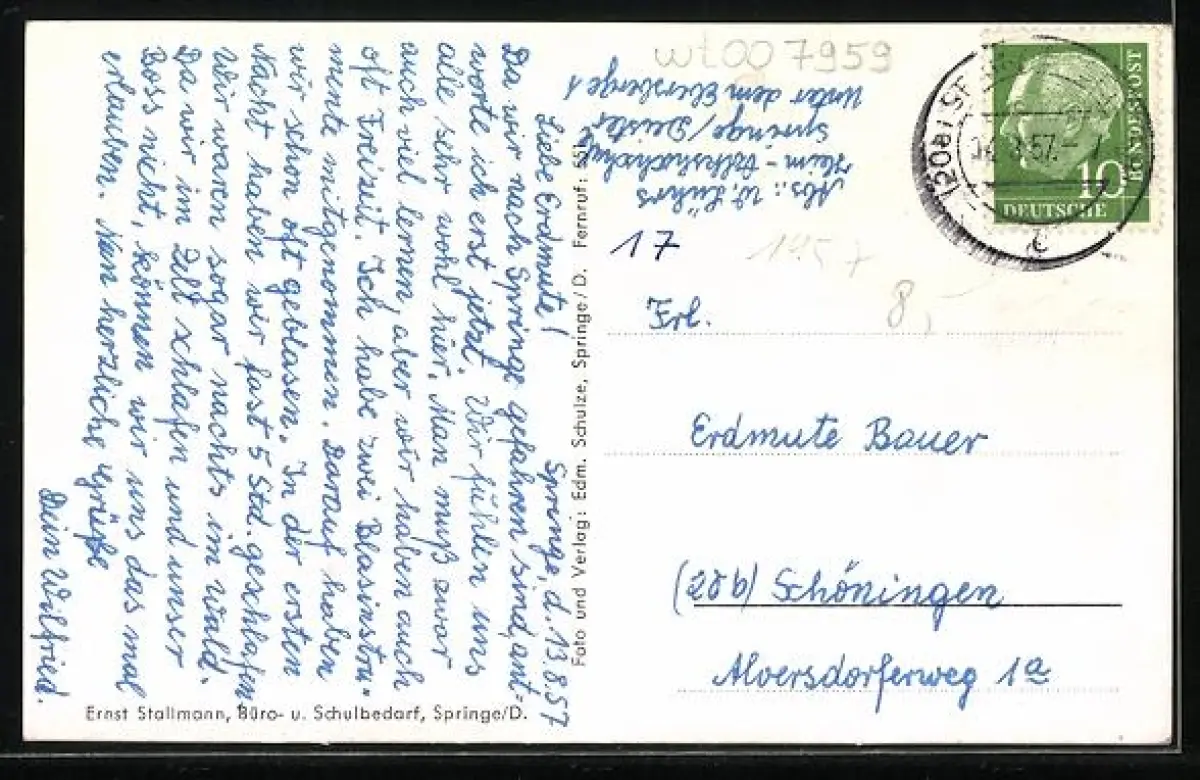 Springe, d. 13.8.57
Liebe Erdmute!
Da wir nach Springe gefahren sind, ant=
worte ich erst jetzt. Wir fühlen uns
alle sehr wohl hier. Man muß zwar
auch viel lernen, aber wir haben auch
oft Freizeit. Ich habe zwei Blasinstru-
mente mitgenommen. Darauf haben
wir schon oft geblasen. In der ersten
Nacht haben wir fast 5 Std. geschlafen.
Wir waren sogar nachts im Wald.
Da wir im Zelt schlafen und unser
Boss nicht, können wir uns das mal
erlauben. Nun herzliche Grüße
Dein Wilfried.
Ernst Stallmann, Büro- u. Schulbedarf, Springe/D.
Foto und Verlag: Edm. Schulze, Springe/D. Fernruf:
wt007959
Abs.: W. Lührs
Heim-Volkshochschule
Springe/Deister
Unter dem Ebersberge 1
17
1957
8,
(20b) SP
57
10
DEUTSCHE
BUNDESPOST
Frl.
Erdmute Bauer
(20b) Schöningen
Alversdorferweg 1a